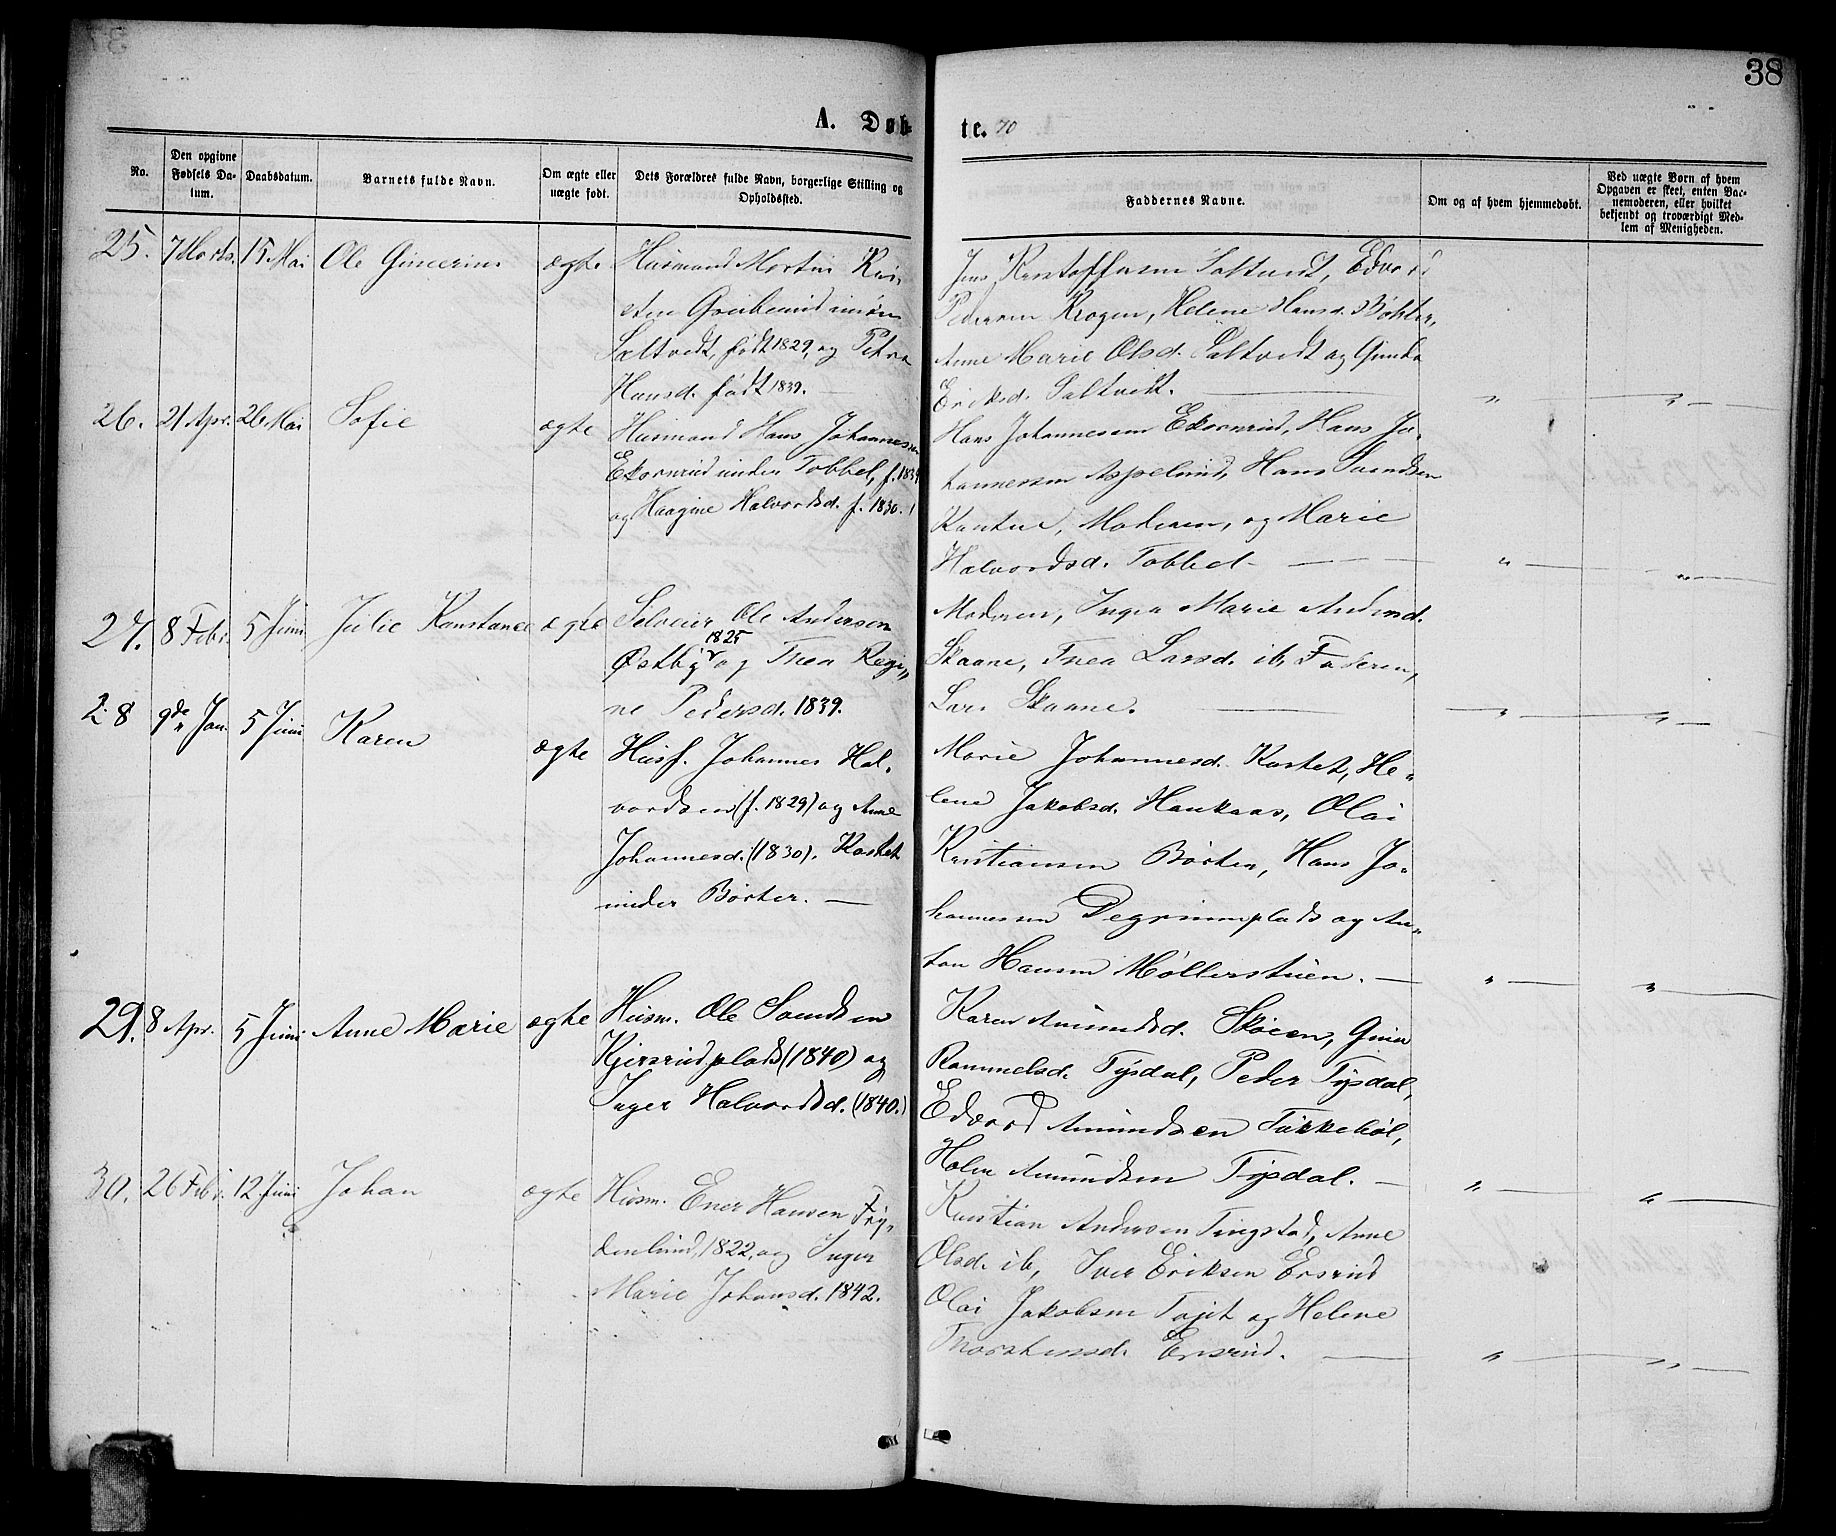 38
A. Døb-
te. 70
No.
Den opgivne Fødsels Da-
tum.
Daabsdatum.
Barnets fulde Navn.
Om ægte eller
uægte født.
Dets Forældres fulde Navn, borgerlige Stilling og
Opholdssted.
Faddernes Navne.
Om og af hvem hjemmedøbt.
Ved uægte Børn af hvem
Opgaven er skeet, enten Bar-
nemoderen, eller hvilket
bekjendt og troværdigt Med-
lem af Menigheden.
25. 7 Marts. 15 Mai Ole ægte
Husmand Martin Kri-
sten
Saltvedt, født 1829, og Petra
Hansd. født 1839. —
Jens Kristoffersen Saltvedt, Edvard
Pedersen Krogen, Helene Hansd. Bøhler,
Anne Marie Olsd. Saltvedt og
Eriksd. Saltvedt. — " — " —
26. 21 Apr. 26 Mai Sofie ægte
Husmand Hans Johannessen
Ekornrud under Tobbel, f. 1834
og Haagine Halvordsd. f. 1830.
Hans Johannessen Ekornrud, Hans Jo-
hannessen Aspelund, Hans Svendsen
Moderen, og Marie
Halvordsd. Tobbel — " — " —
27. 8 Febr. 5 Juni Julie Konstance ægte
Selveier Ole Andersen
1825
Østby og Thea Regi„
ne Pedersd. 1839.
Moderen, Inger Marie
Skaane, Thea Larsd. ib, Faderen,
Lars Skaane. — " — " —
28 9de Jan. 5 Juni Karen ægte
Husf. Johannes Hal-
vordsen (f. 1829) og Anne
Johannesd. (1830). Kastet
under Børter. —
Marie Johannesd. Kastet, He„
lene Jakobsd. Haukaas, Olai
Kristiansen Børter, Hans Jo-
hannessen Degrumplads og An„
ton Hansen Møllerstuen. — " — "
29. 8 Apr. 5 Juni Anne Marie ægte
Husm. Ole Svendsen
Kjersrudplads (1840) og
Inger Halvordsd. (1840.)
Karen Amundsd. Skøien,
Rammelsd. Tysdal, Peder Tysdal,
Edvard Amundsen Takkebøl,
Amundsen Tysdal. — " — "
30. 26 Febr. 12 Juni Johan ægte
Husm. Ener Hansen Fry„
denlund, 1822, og Inger
Marie Johansd. 1842.
Kristian Andersen Tingstad, Anne
Olsd. ib, Iver Eriksen Ersrud
Olai Jakobsen og Helene
Thorstensd. Ersrud. — " — " —